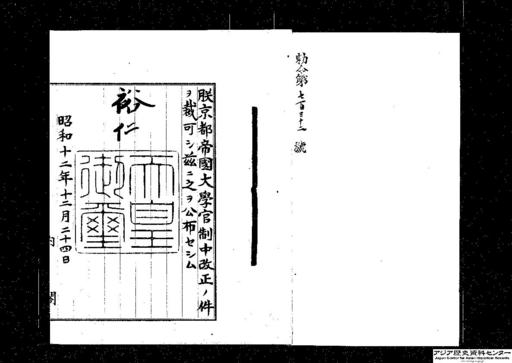 勅令第七百三十二號
朕京都帝國大學官制中改正ノ件
ヲ裁可シ茲ニ之ヲ公布セシム
裕仁
天皇御璽
昭和十二年十二月二十四日
内閣
アジア歴史資料センター
Japan Center for Asian Historical Records